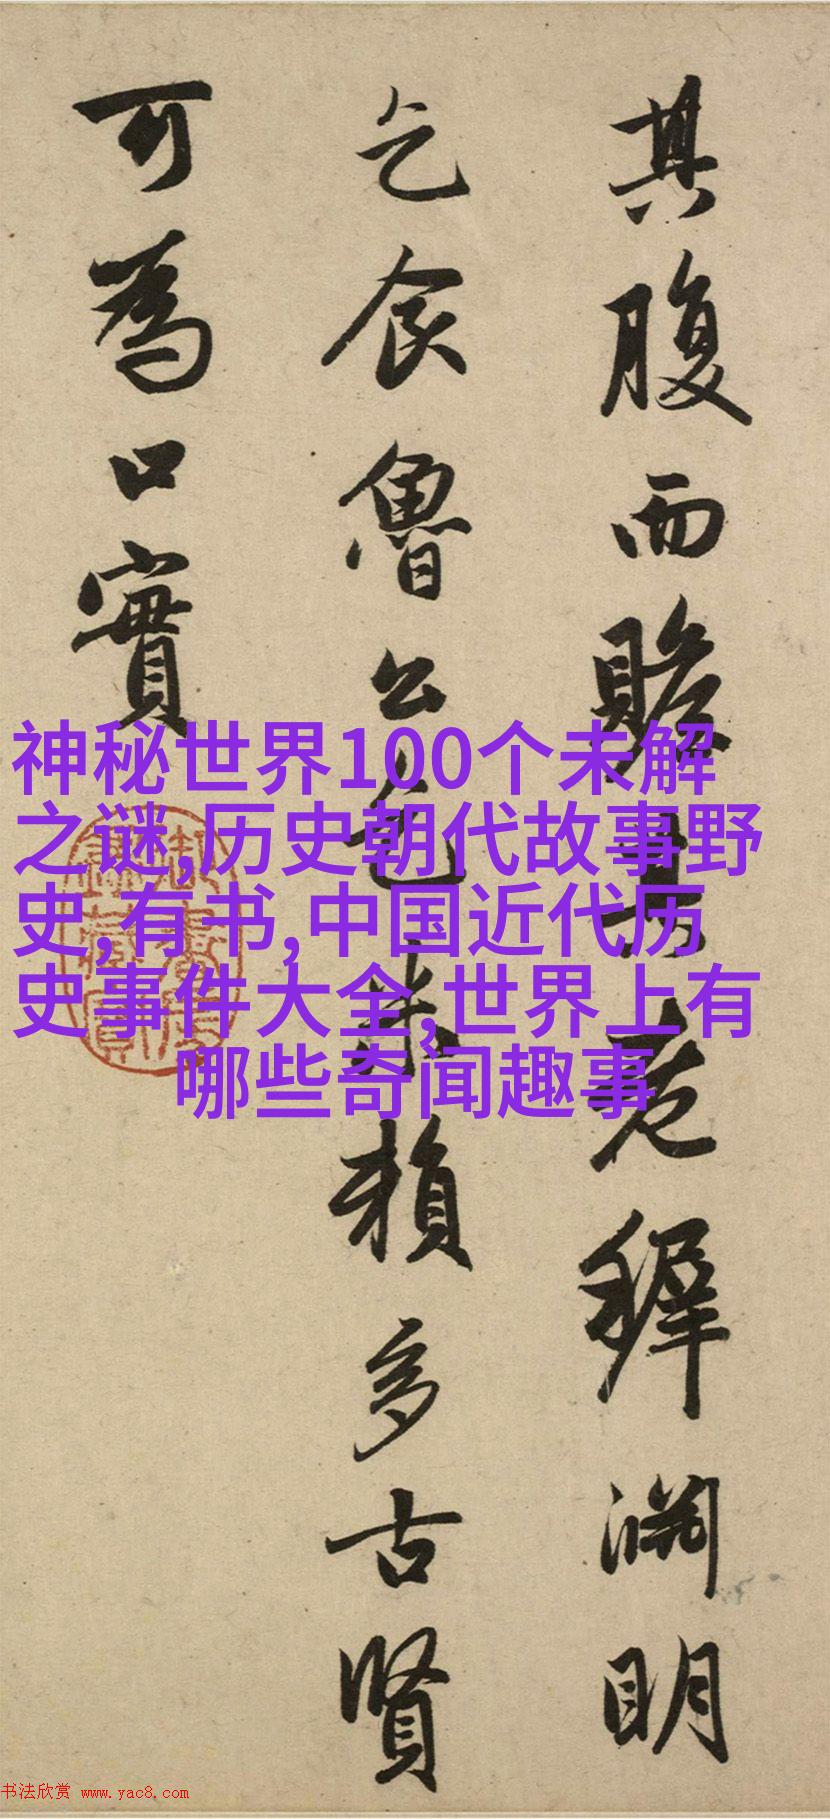 其腹而贍其老稺淵明
乞食魯公乞米賴多古賢
可為口實
神秘世界100个未解
之谜,历史朝代故事野
史,有书,中国近代历
史事件大全,世界上有
哪些奇闻趣事
书法欣赏 www.yac8.com